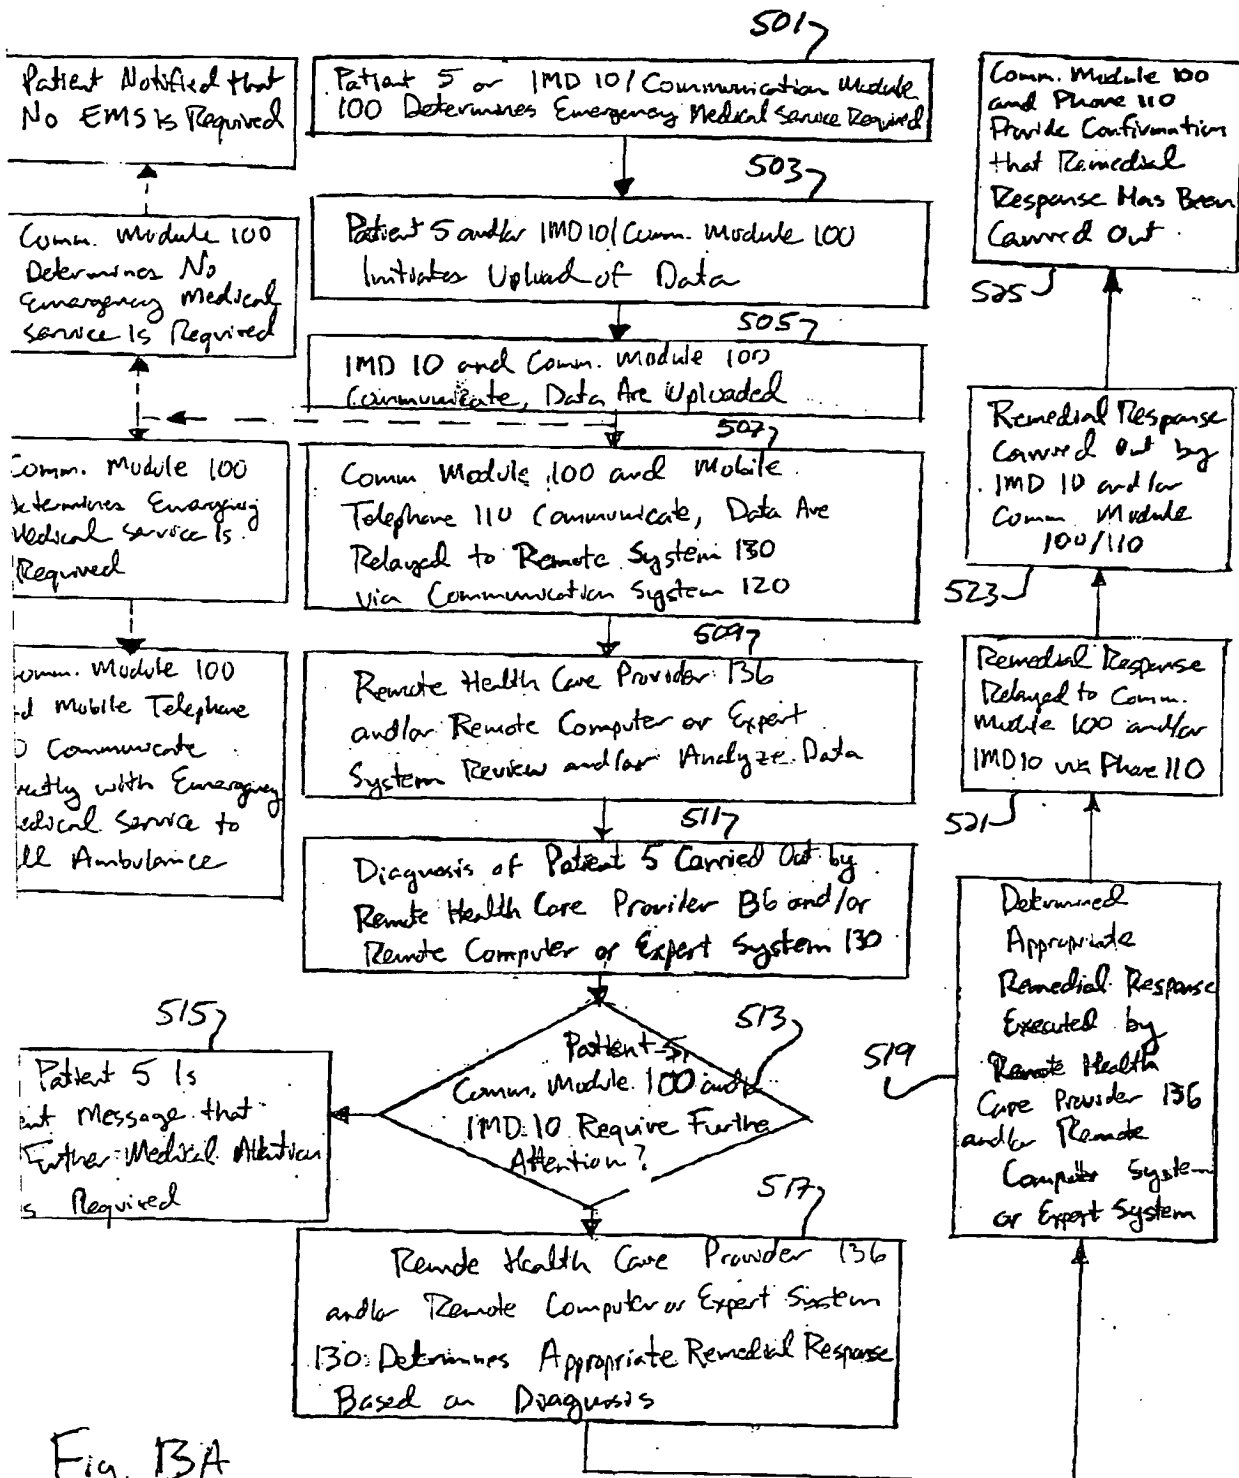 5017
Patient Notified that
No EMS is Required
Patient 5 or IMD 10/Communication Module
100 Determines Emergency Medical Service Required
Comm. Module 100
and Phone 110
Provide Confirmation
that Remedial
Response Has Been
Carried Out
525
5037
Comm. Module 100
Determines No
Emergency Medical
Service Is Required
Patient 5 and/or IMD10/Comm. Module 100
Initiates Upload of Data
5057
IMD 10 and Comm. Module 100
Communicate, Data Are Uploaded
5077
Comm. Module 100
etermines Emergency
Medical Service Is
Required
Comm Module 100 and Mobile
Telephone 110 Communicate, Data Are
Relayed to Remote System 130
via Communication System 120
Remedial Response
Carried Out by
IMD 10 and/or
Comm. Module
100/110
523
5097
omm. Module 100
d Mobile Telephone
0 Communicate
rectly with Emergency
edical Service to
ll Ambulance
Remote Health Care Provider 136
and/or Remote Computer or Expert
System Review and/or Analyze Data
Remedial Response
Relayed to Comm.
Module 100 and/or
IMD10 via Phone 110
521
5117
Diagnosis of Patient 5 Carried Out by
Remote Health Care Provider 136 and/or
Remote Computer or Expert System 130
Determined
Appropriate
Remedial Response
Executed by
Remote Health
Care Provider 136
and/or Remote
Computer System
or Expert System
519
5157
Patient 5 Is
ent Message that
Further Medical Attention
s Required
5137
Patient 5,
Comm. Module 100 and/
IMD 10 Require Furthe
Attention?
5177
Remote Health Care Provider 136
and/or Remote Computer or Expert System
130 Determines Appropriate Remedial Response
Based on Diagnosis
Fig. 13A